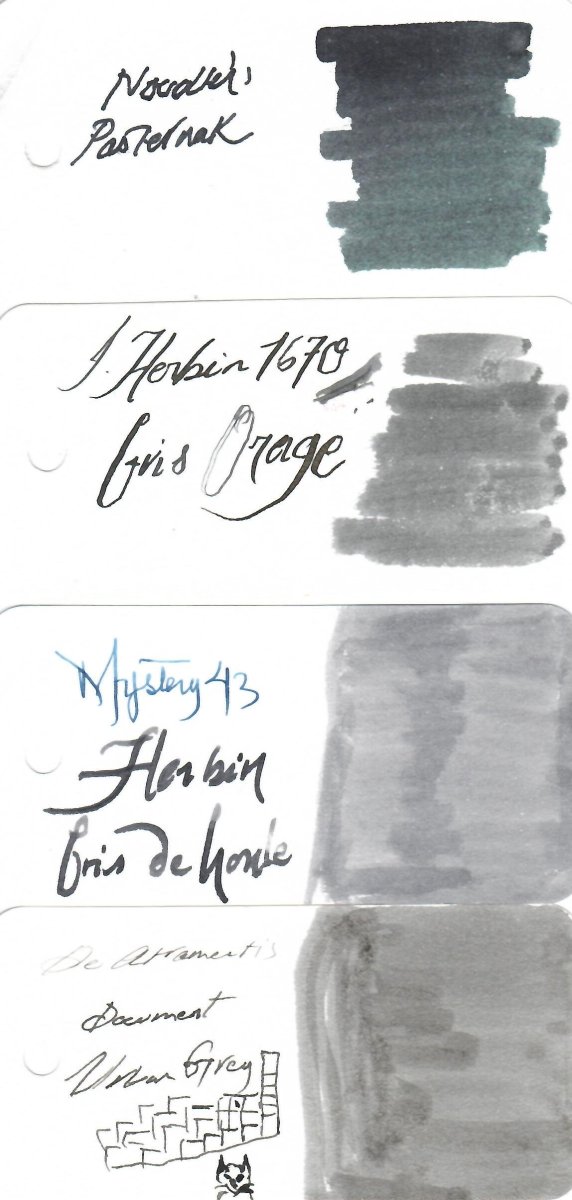 Noodler's
Pasternak
J. Herbin 1670
Gris Orage
Mystery 43
Herbin
Gris de houle
De Atramentis
Document
Urban Grey